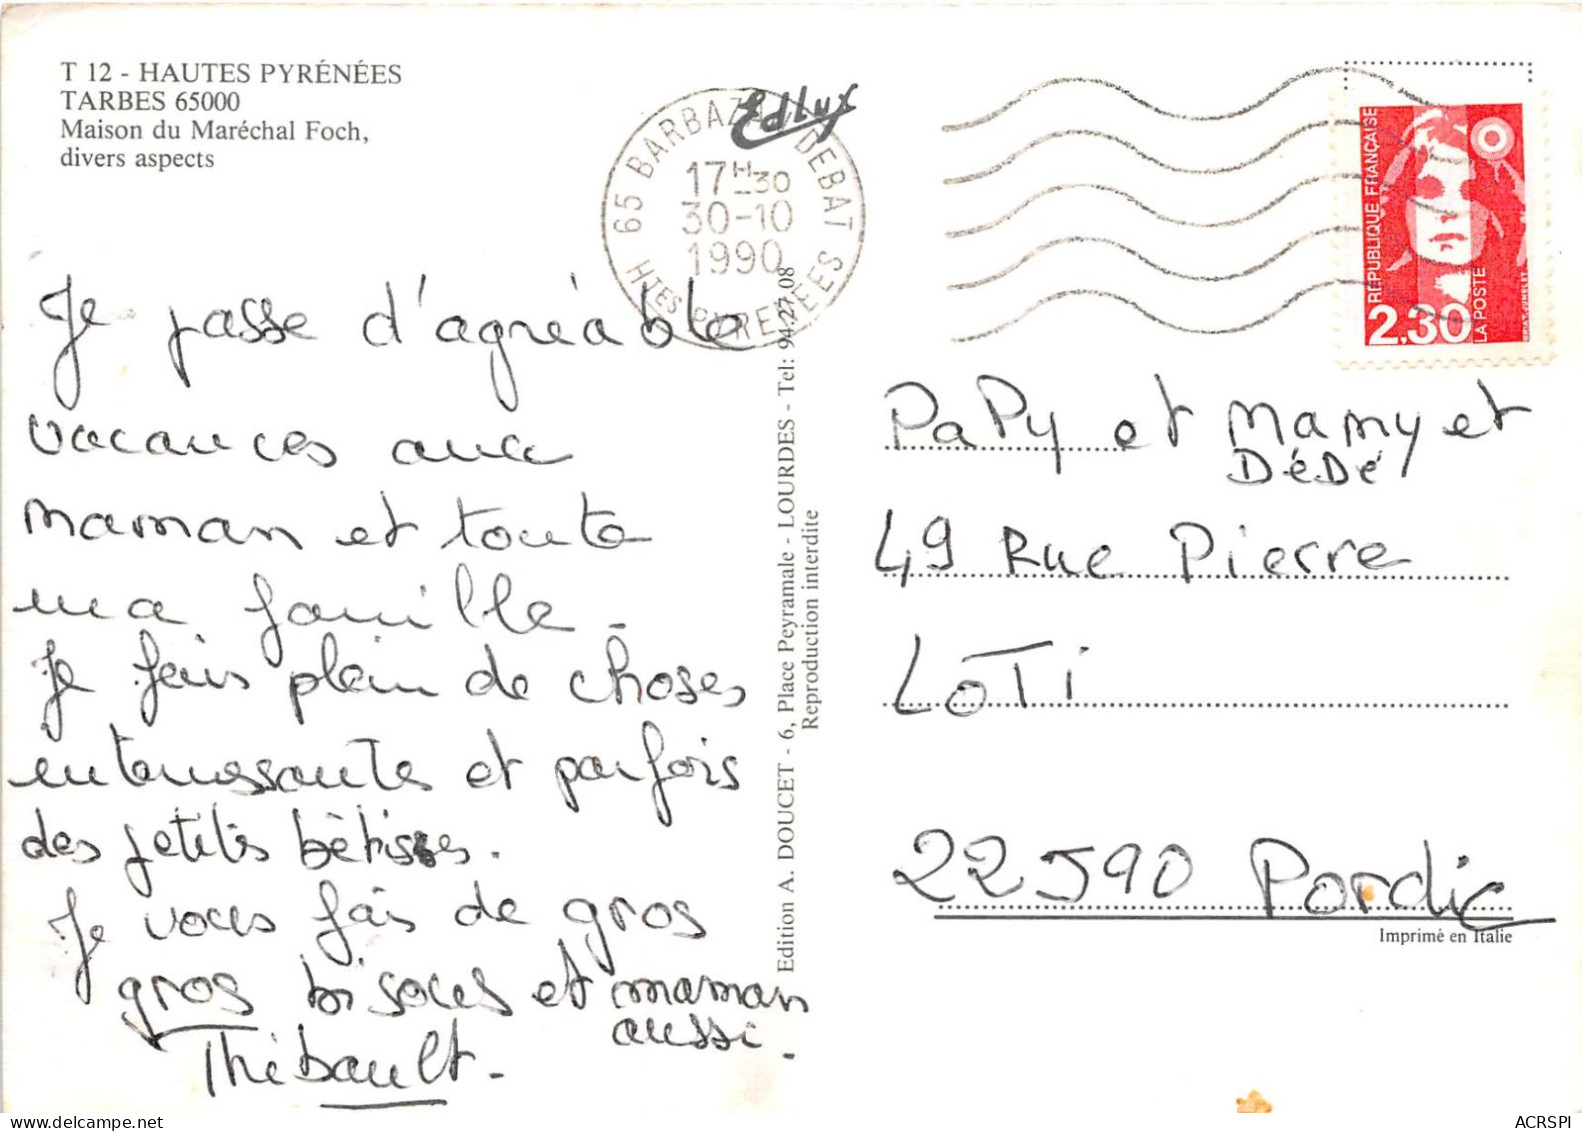 T 12 - HAUTES PYRÉNÉES
TARBES 65000
Maison du Maréchal Foch,
divers aspects
Edlux
65 BARBAZAN DEBAT
17H-30
30-10
1990
HTES PYRENEES
REPUBLIQUE FRANÇAISE
LA POSTE
2,30
Je passe d'agréable
vacances avec
maman et toute
ma famille.
Je fais plein de choses
interressantes et parfois
des petites bêtises.
Je vous fais de gros
gros bisous et maman
aussi.
Thibault.
Edition A. DOUCET - 6, Place Peyramale - LOURDES - Tel: 94.27.08
Reproduction interdite
PaPy et Mamy et
DéDé
49 Rue Pierre
LoTi
22590 Pordic
Imprimé en Italie
ACRSPI